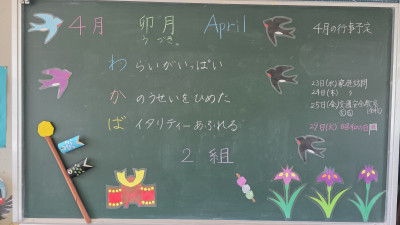 4月 卯月 April
うづき。
わらいがいっぱい
かのうせいをひめた
ばイタリティーあふれる
2組
4月の行事予定
23日(水)家庭訪問
24日(木) 〃
25日(金)交通安全教室
29日(火)昭和の日